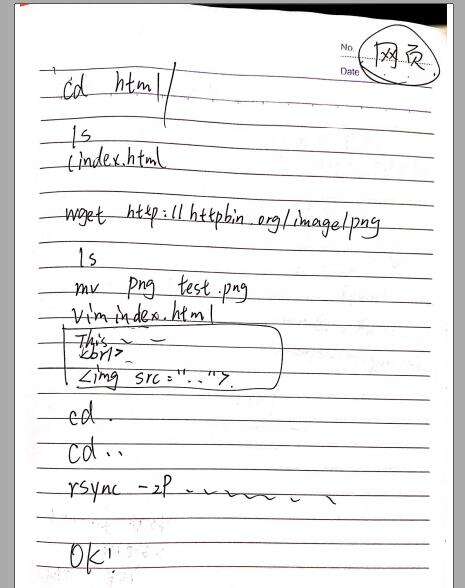 No.
Date
网页
cd html/
ls
(index.html
wget http://httpbin.org/image/png
ls
mv png test.png
vim index.html
This ~ –
<br/>
<img src=".."/>
cd .
cd ..
rsync -zP ~ ~ ~ ~ ~ ~ ~
OK!